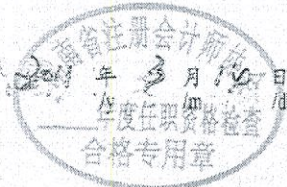 南省注册会计师协
2011 年 3 月 15 日
/y /m /d
年度任职资格检查
合格专用章